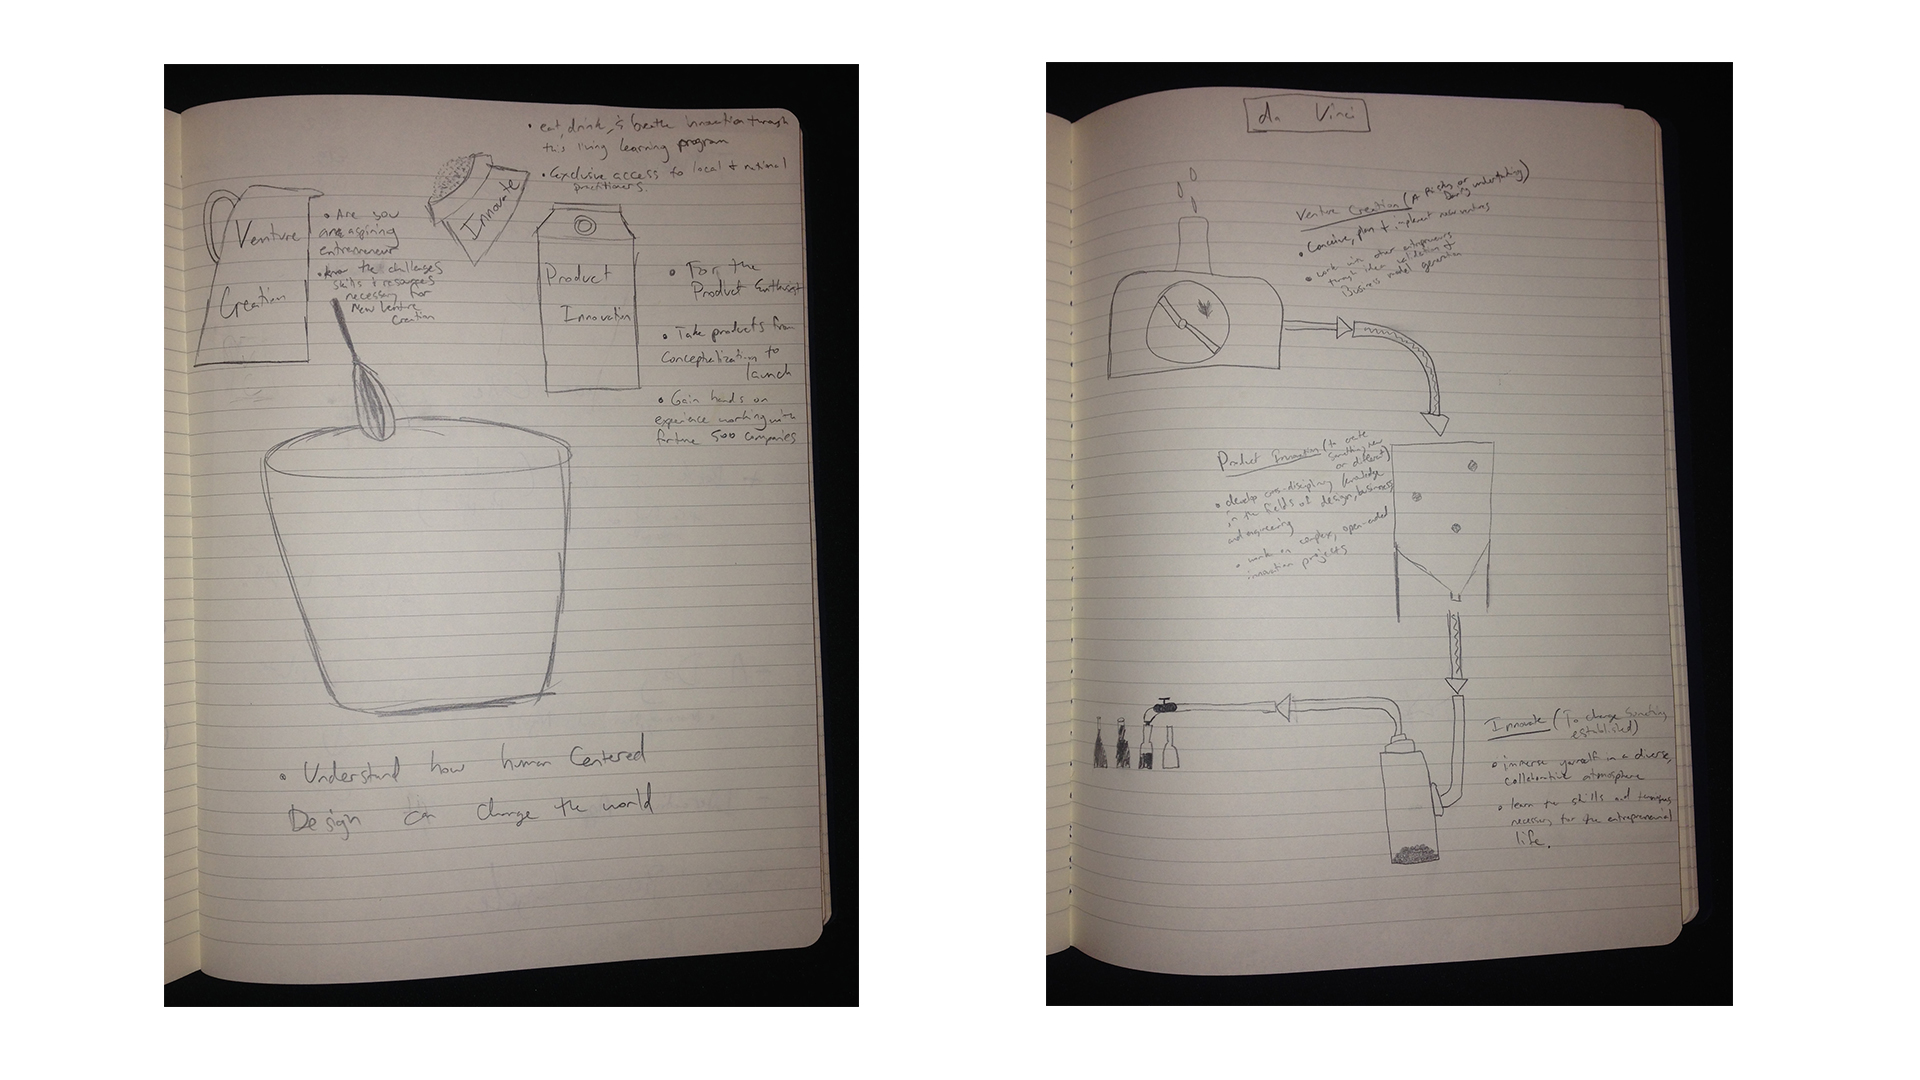 • eat, drink, & breathe Innovation through
this living learning program
• Exclusive access to local + national
Innovate
Venture
Creation
• Are you
an aspiring
entrepreneur
• know the challenges
skills & resources
necessary for
New Venture
Creation
Product
Innovation
• For the
Product Enthusist
• Take products from
Conceptulization to
launch
• Gain hands on
experience working with
fortune 500 companies
• Understand how human Centered
Design can change the world
da Vinci
Venture Creation (A Risky or
Daring undertaking)
• Conceive, plan & implement new ventures
• work with other entrepreneurs
through idea validation &
Business model generation
Product Innovation (to create
something new
or different)
• develop cross-disciplinary knowledge
in the fields of design, business,
and engineering
• work on complex, open-ended
innovation projects
Innovate (To change something
established)
• immerse yourself in a diverse,
collaborative atmosphere
• learn the skills and techniques
necessary for the entrepreneurial
life.